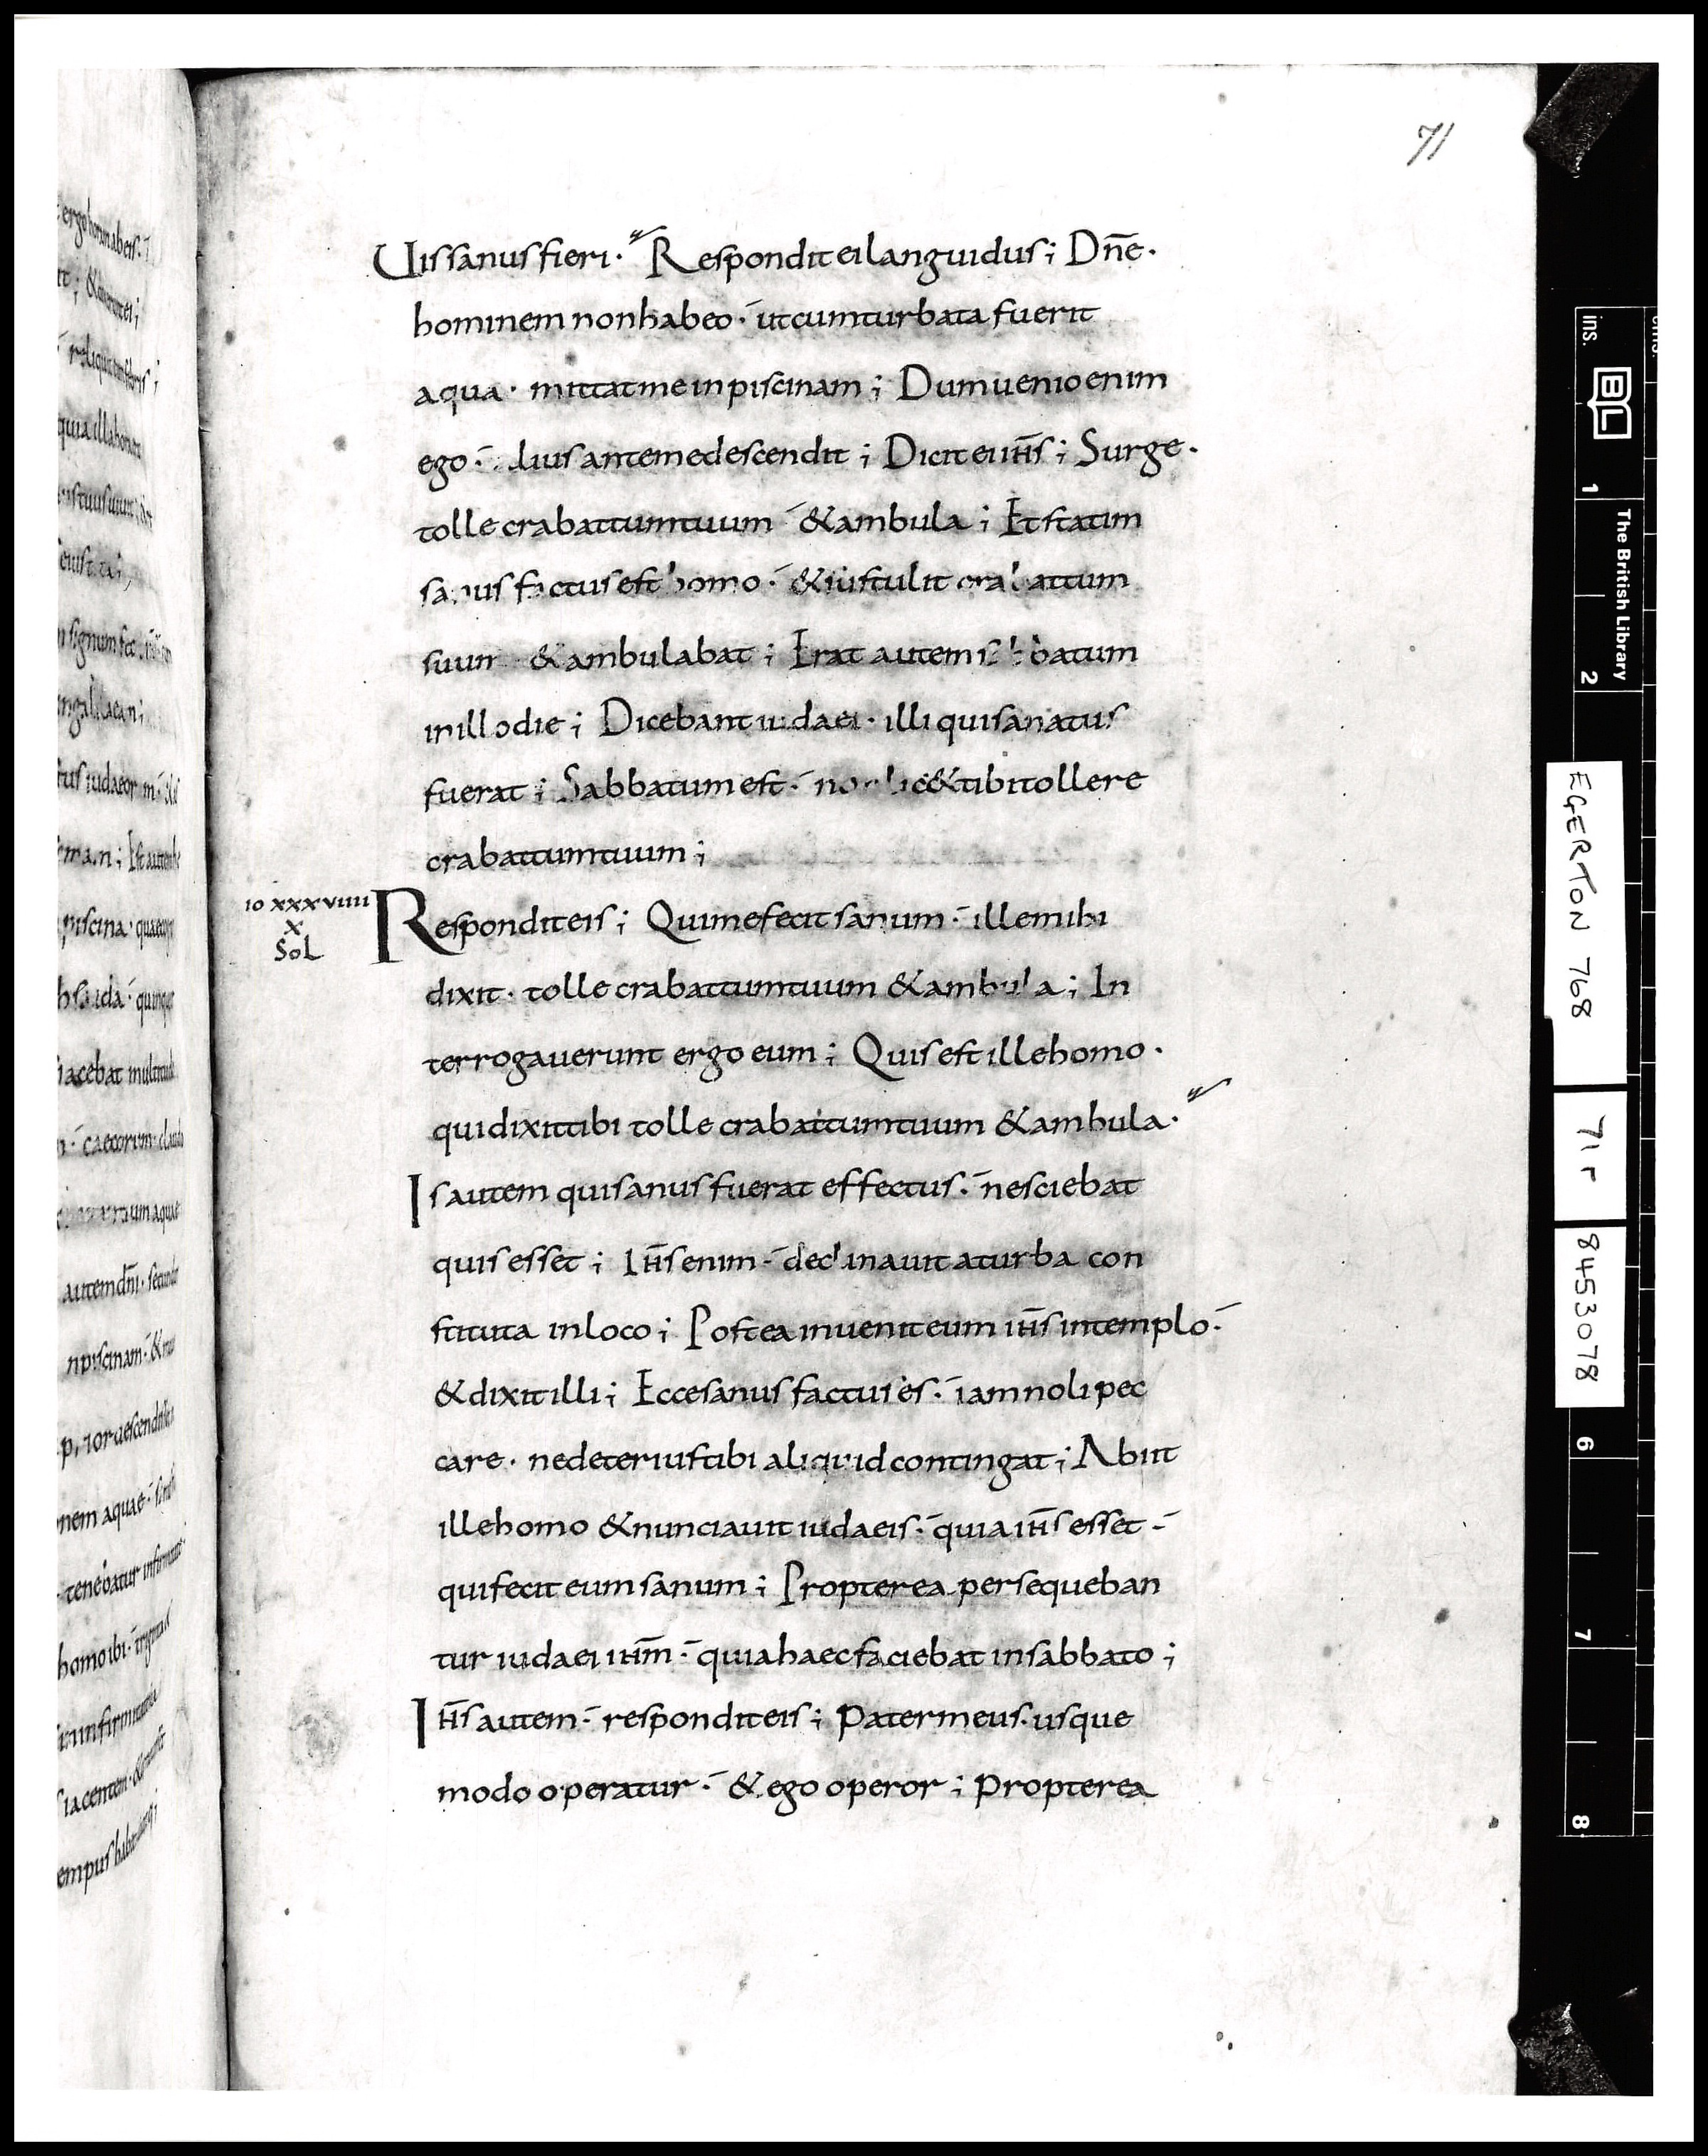 71
Uis sanus fieri · Respondit ei languidus ; Dn̄e ·
hominem non habeo · ut cum turbata fuerit
aqua · mittat me in piscinam ; Dum uenio enim
ego · alius ante me descendit ; Dicit ei ih̄s ; Surge ·
tolle crabattum tuum & ambula ; Et statim
sanus factus est homo · & sustulit crabattum
suum & ambulabat ; Erat autem sabbatum
in illo die ; Dicebant iudaei · illi qui sanatus
fuerat ; Sabbatum est · non lic& tibi tollere
crabattum tuum ;
io xxxviiii
x
Sol
Respondit eis ; Qui me fecit sanum · ille mihi
dixit · tolle crabattum tuum & ambula ; In
terrogauerunt ergo eum ; Quis est ille homo ·
qui dixit tibi tolle crabattum tuum & ambula ·
Is autem qui sanus fuerat effectus · nesciebat
quis esset ; Ih̄s enim · declinauit a turba con
stituta in loco ; Postea inuenit eum ih̄s in templo ·
& dixit illi ; Ecce sanus factus es · iam noli pec
care · ne deterius tibi aliquid contingat ; Abiit
ille homo & nunciauit iudaeis · quia ih̄s esset ·
qui fecit eum sanum ; Propterea persequeban
tur iudaei ih̄m · quia haec faciebat in sabbato ;
Ih̄s autem · respondit eis ; Pater meus · usque
modo operatur · & ego operor ; Propterea
ins.
1
2
6
7
8
BL
The British Library
EGERTON 768
71r
8453078